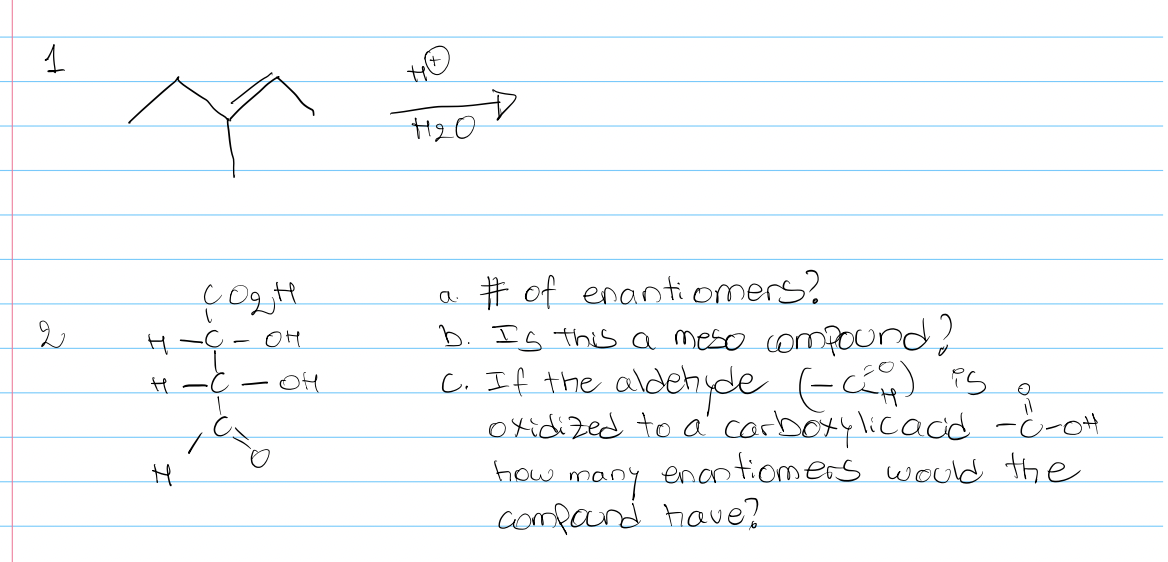 1
H⊕
H2O
2
CO2H
H - C - OH
H - C - OH
C
H O
a. # of enantiomers?
b. Is this a meso compound?
c. If the aldehyde (-C=O H) is
oxidized to a carboxylic acid -C-OH
O
how many enantiomers would the
compound have?